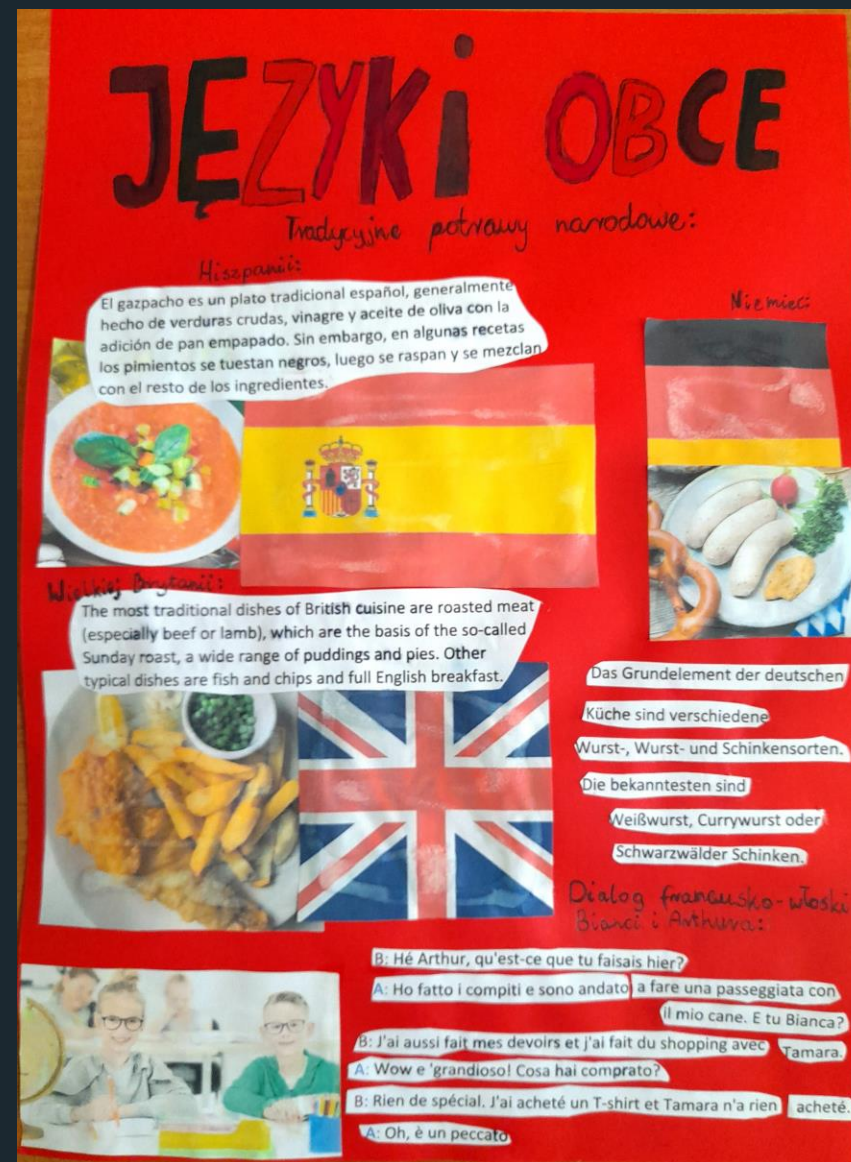 JĘZYKi OBCE
Tradycyjne potrawy narodowe:
Hiszpanii:
El gazpacho es un plato tradicional español, generalmente
hecho de verduras crudas, vinagre y aceite de oliva con la
adición de pan empapado. Sin embargo, en algunas recetas
los pimientos se tuestan negros, luego se raspan y se mezclan
con el resto de los ingredientes.
Niemiec:
Wielkiej Brytanii:
The most traditional dishes of British cuisine are roasted meat
(especially beef or lamb), which are the basis of the so-called
Sunday roast, a wide range of puddings and pies. Other
typical dishes are fish and chips and full English breakfast.
Das Grundelement der deutschen
Küche sind verschiedene
Wurst-, Wurst- und Schinkensorten.
Die bekanntesten sind
Weißwurst, Currywurst oder
Schwarzwälder Schinken.
Dialog francusko-włoski
Bianci i Arthura:
B: Hé Arthur, qu'est-ce que tu faisais hier?
A: Ho fatto i compiti e sono andato a fare una passeggiata con
il mio cane. E tu Bianca?
B: J'ai aussi fait mes devoirs et j'ai fait du shopping avec Tamara.
A: Wow e 'grandioso! Cosa hai comprato?
B: Rien de spécial. J'ai acheté un T-shirt et Tamara n'a rien acheté.
A: Oh, è un peccato